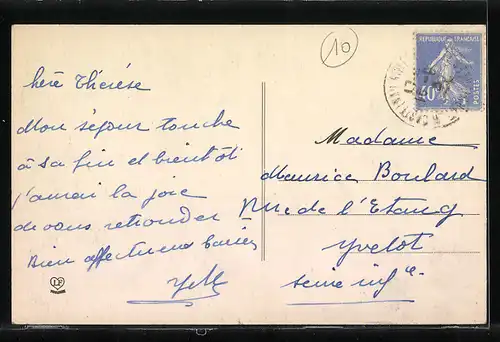 10
REPUBLIQUE FRANÇAISE
40c
POSTES
Chère Thérèse
Mon séjour touche
à sa fin et bientôt
j'aurai la joie
de vous retrouver
Bien affectueux baisers
Madame
Maurice Boulard
Rue de l'Etang
Yvetot
Seine infre